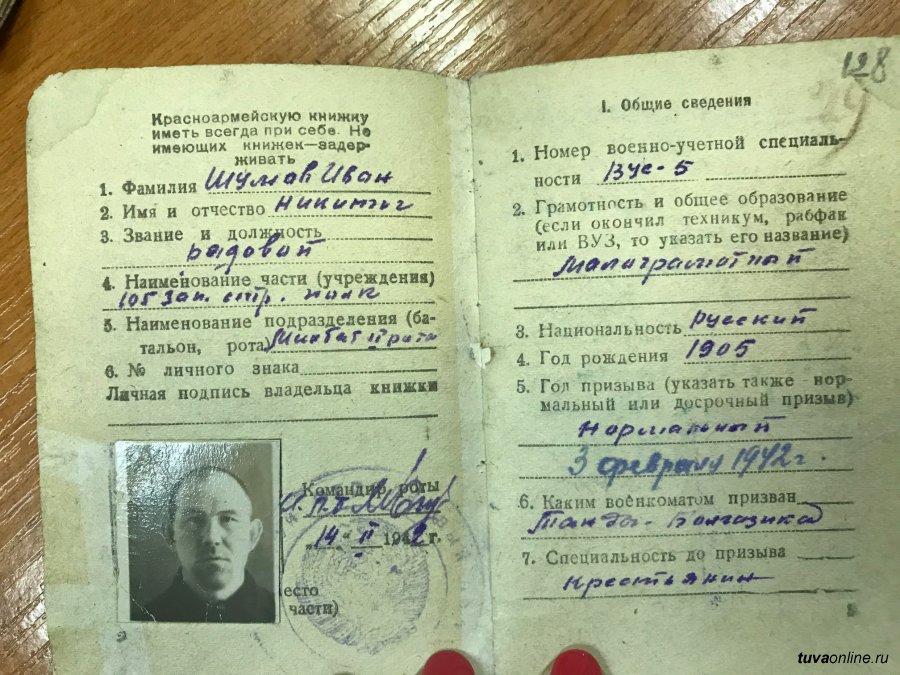 Красноармейскую книжку
иметь всегда при себе. Не
имеющих книжек—задер-
живать
1. Фамилия Шумов Иван
2. Имя и отчество Никитич
3. Звание и должность
рядовой
4. Наименование части (учреждения)
105 Зап. стр. полк
5. Наименование подразделения (ба-
тальон, рота) Минбат II рота
6. № личного знака
Личная подпись владельца книжки
Командир роты
„14“ II 1942 г.
место
части)
128
I. Общие сведения
1. Номер военно-учетной специаль-
ности Вус-5
2. Грамотность и общее образование
(если окончил техникум, рабфак
или ВУЗ, то указать его название)
Малограмотный
3. Национальность Русский
4. Год рождения 1905
5. Год призыва (указать также нор-
мальный или досрочный призыв)
Нормальный
3 февраля 1942 г.
6. Каким военкоматом призван
7. Специальность до призыва
Крестьянин
tuvaonline.ru